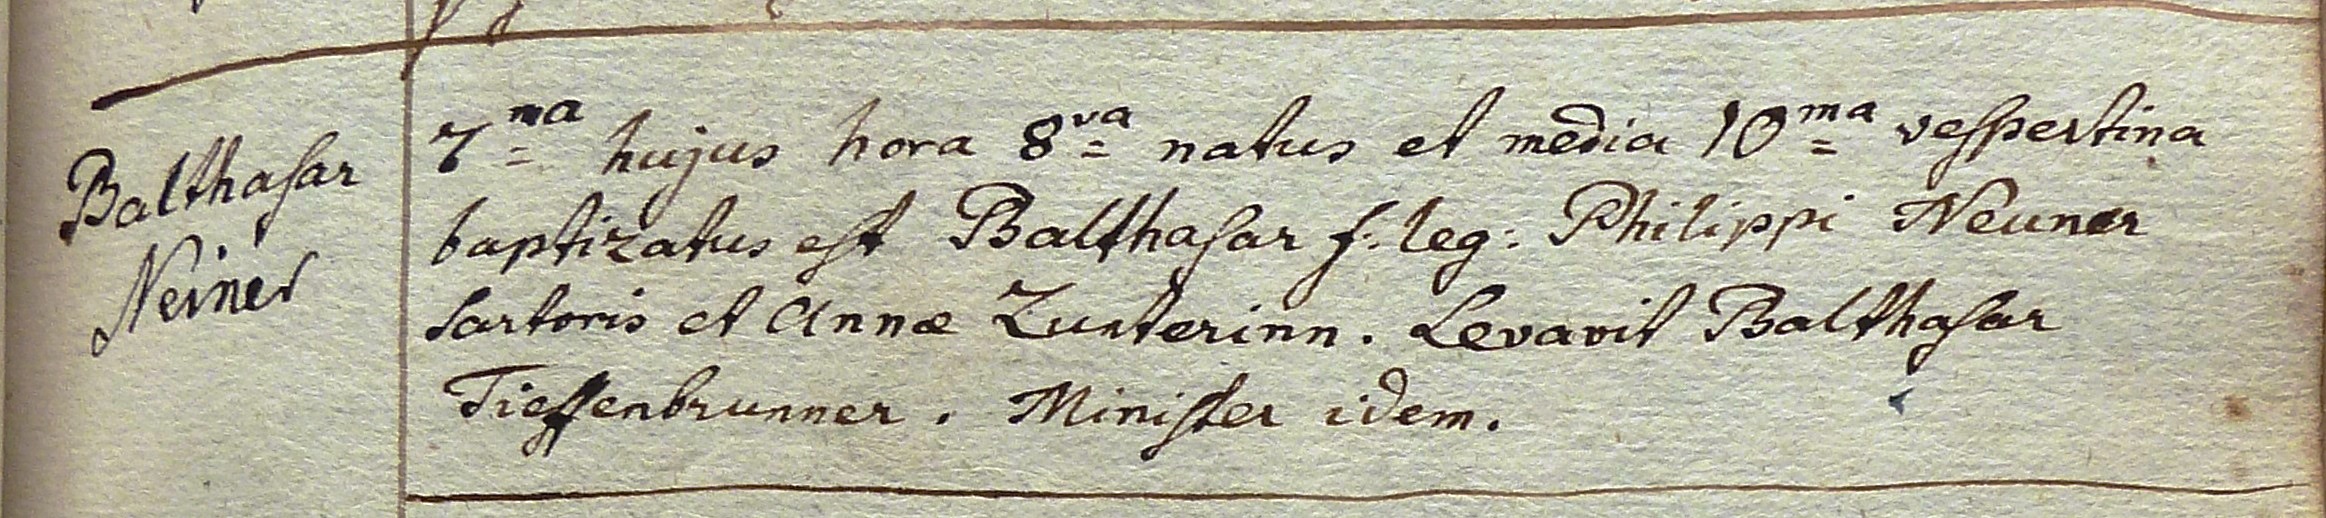 Balthasar
Neiner
7ma hujus hora 8va natus et media 10ma vespertina
baptizatus est Balthasar f: leg: Philippi Neuner
Sartoris et Annæ Zunterinn. Levavit Balthasar
Tieffenbrunner. Minister idem.